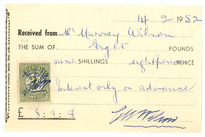 14 - 2 - 1952
Received from Mr Murray Wilson
THE SUM OF Eight POUNDS
nine SHILLINGS eight pence
Interest only on advance
£ 8 : 9 : 8